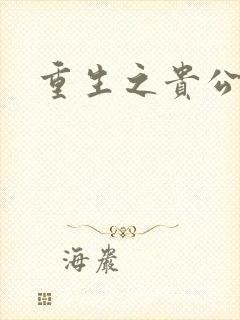 重生之貴公
海巖